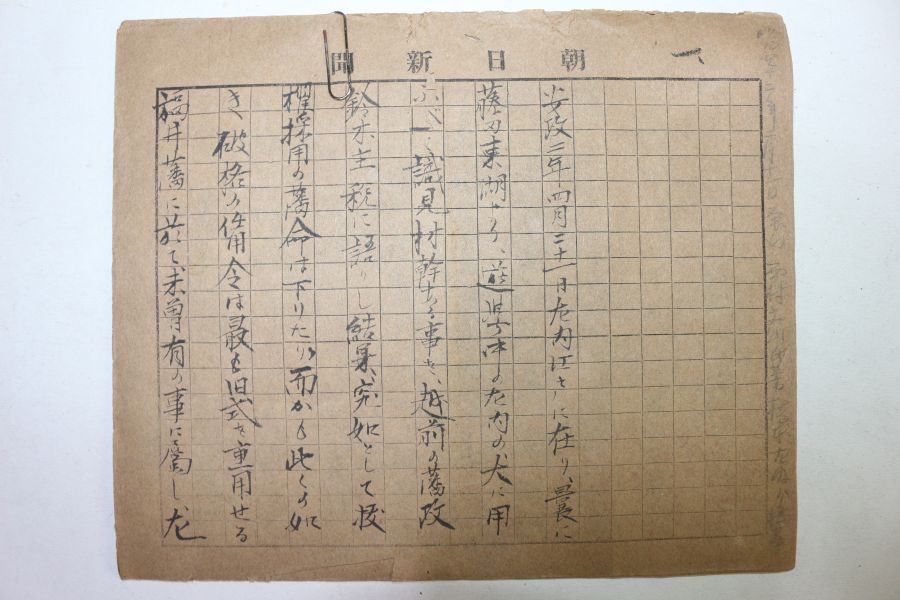 一
朝日新聞
安政三年四月二十一日左内江戸に在り、曩に
藤田東湖より、中の左内の大に用
ふべく、識見材幹ある事を、越前の藩政
鈴木主税に語りし結果、突如として抜
擢採用の藩命は下りたり、而かも此くの如
き破格の任用令は最も旧式を重用せる
福井藩に於て、未曽有の事に属し左